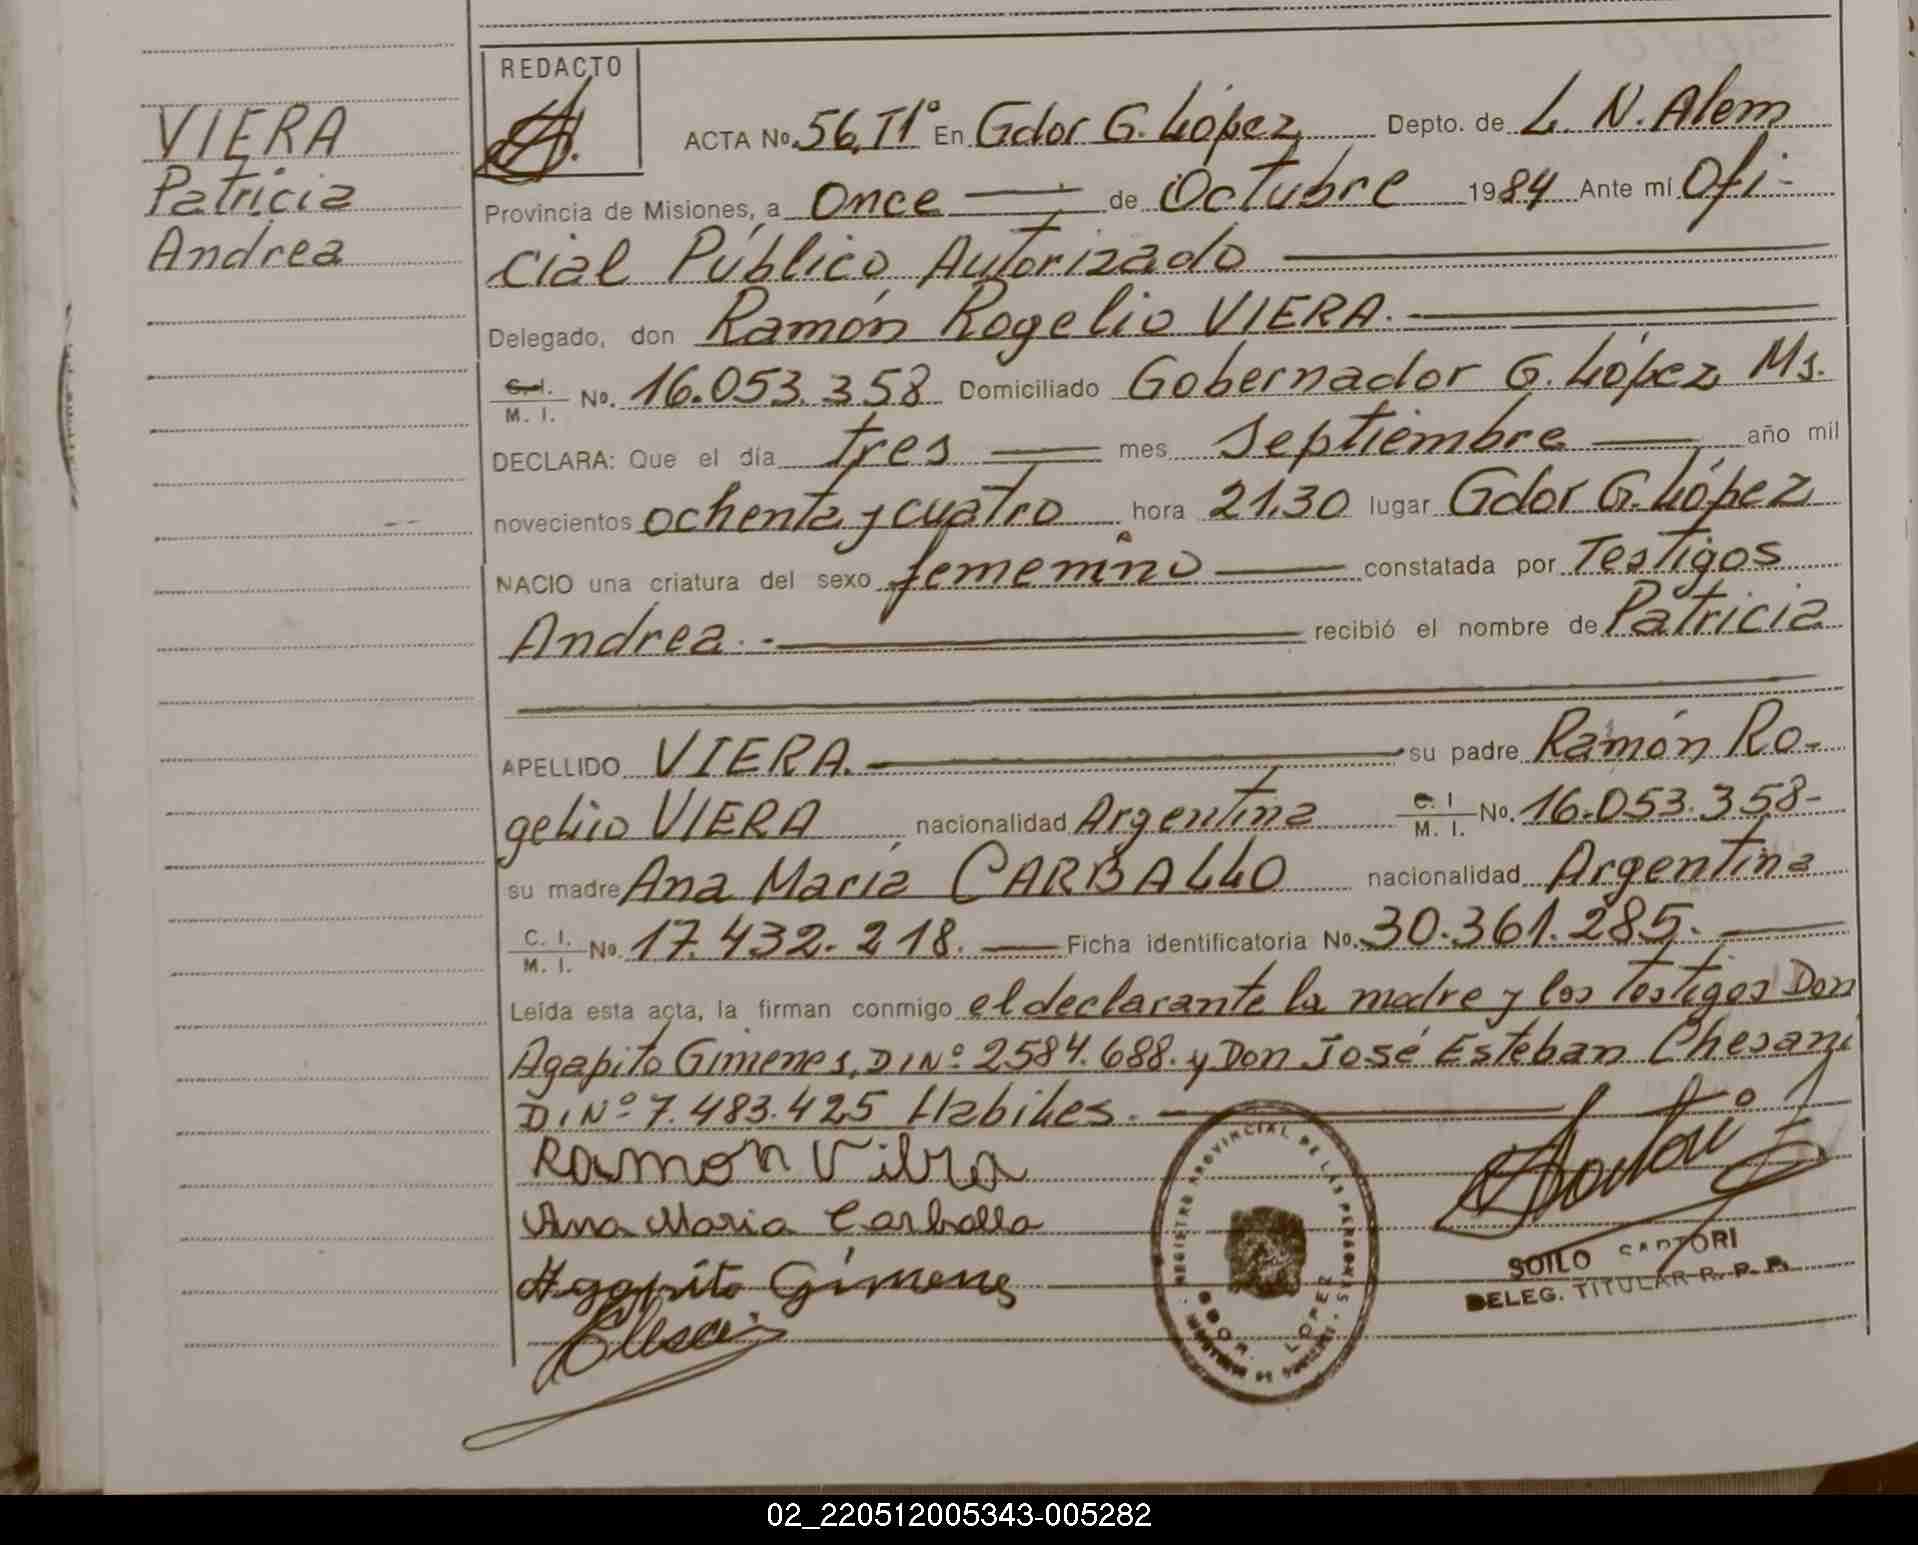 VIERA
Patricia
Andrea
REDACTO
ACTA No. 56, T1° En Gdor G. López Depto. de L. N. Alem
Provincia de Misiones, a Once de Octubre 1984 Ante mí Ofi-
cial Público Autorizado
Delegado, don Ramón Rogelio VIERA.
C. I. / M. I. No. 16.053.358 Domiciliado Gobernador G. López Ms.
DECLARA: Que el día tres mes Septiembre año mil
novecientos ochenta y cuatro hora 21,30 lugar Gdor G. López
NACIO una criatura del sexo femenino constatada por Testigos
Andrea.- recibió el nombre de Patricia
APELLIDO VIERA. su padre Ramón Ro-
gelio VIERA nacionalidad Argentina C. I / M. I. No. 16.053.358-
su madre Ana María CARBALLO nacionalidad Argentina
C. I. / M. I. No. 17.432.218. Ficha identificatoria No. 30.361.285.
Leída esta acta, la firman conmigo el declarante la madre y los testigos Don
Agapito Gimenes, DI N° 2584.688. y Don José Esteban Chesani
DI N° 7.483.425 Habiles.
Ramon Viera
Ana Maria Carballo
Agapito Gimenes
REGISTRO PROVINCIAL DE LAS PERSONAS
GDOR. LOPEZ
SOILO SARTORI
DELEG. TITULAR R. P. P.
02_220512005343-005282